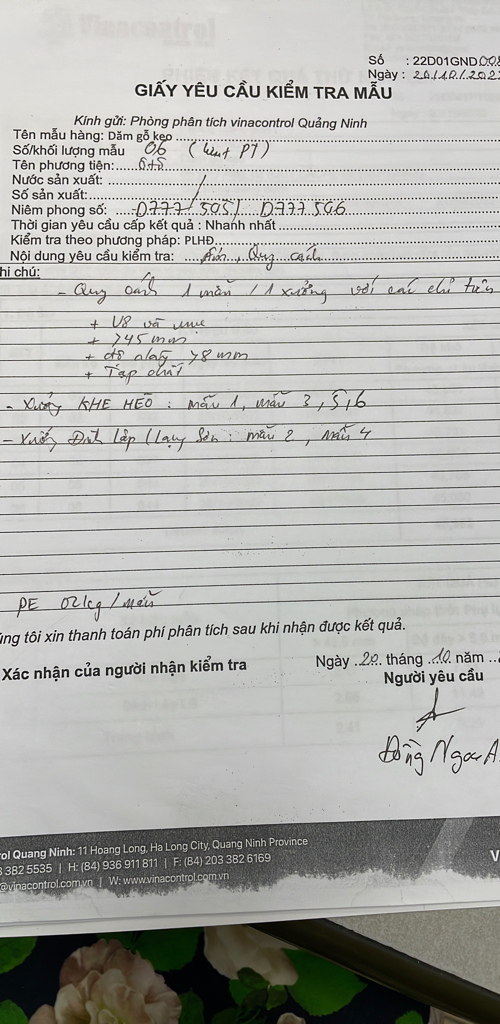 Vinacontrol
Số : 22D01GND
Ngày : 20/10/202
GIẤY YÊU CẦU KIỂM TRA MẪU
Kính gửi: Phòng phân tích vinacontrol Quảng Ninh
Tên mẫu hàng: Dăm gỗ keo
Số/khối lượng mẫu 06
Tên phương tiện:
Nước sản xuất:
Số sản xuất:
Niêm phong số: D777505/ D777506
Thời gian yêu cầu cấp kết quả : Nhanh nhất
Kiểm tra theo phương pháp: PLHĐ
Nội dung yêu cầu kiểm tra: Ẩm, Quy cách
hi chú:
- Quy cách 1 mẫu / 1 xưởng với các chỉ tiêu
+ Vỏ và mục
+ >45mm
+ độ dày >8mm
+ Tạp chất
- Xưởng KHE HÈO : mẫu 1, mẫu 3, 5, 6
- Xưởng Đình Lập (Lạng Sơn : mẫu 2, mẫu 4
PE 02kg/mẫu
úng tôi xin thanh toán phí phân tích sau khi nhận được kết quả.
Ngày 20 tháng 10 năm
Xác nhận của người nhận kiểm tra
Người yêu cầu
Đồng Ngọc A
ol Quang Ninh: 11 Hoang Long, Ha Long City, Quang Ninh Province
3 382 5535 | H: (84) 936 911 811 | F: (84) 203 382 6169
@vinacontrol.com.vn | W: www.vinacontrol.com.vn
V